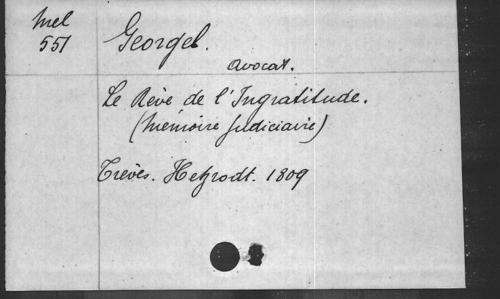 Mel
551
Georgel.
avocat.
Le Rêve de l'Ingratitude.
(Mémoire judiciaire)
Trèves. Hetzrodt. 1809